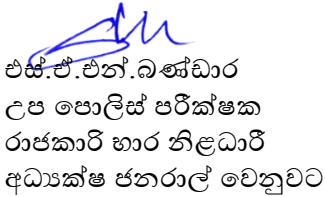 එස්.ඒ.එන්.බණ්ඩාර
උප පොලිස් පරීක්ෂක
රාජකාරි භාර නිළධාරී
අධ්‍යක්ෂ ජනරාල් වෙනුවට